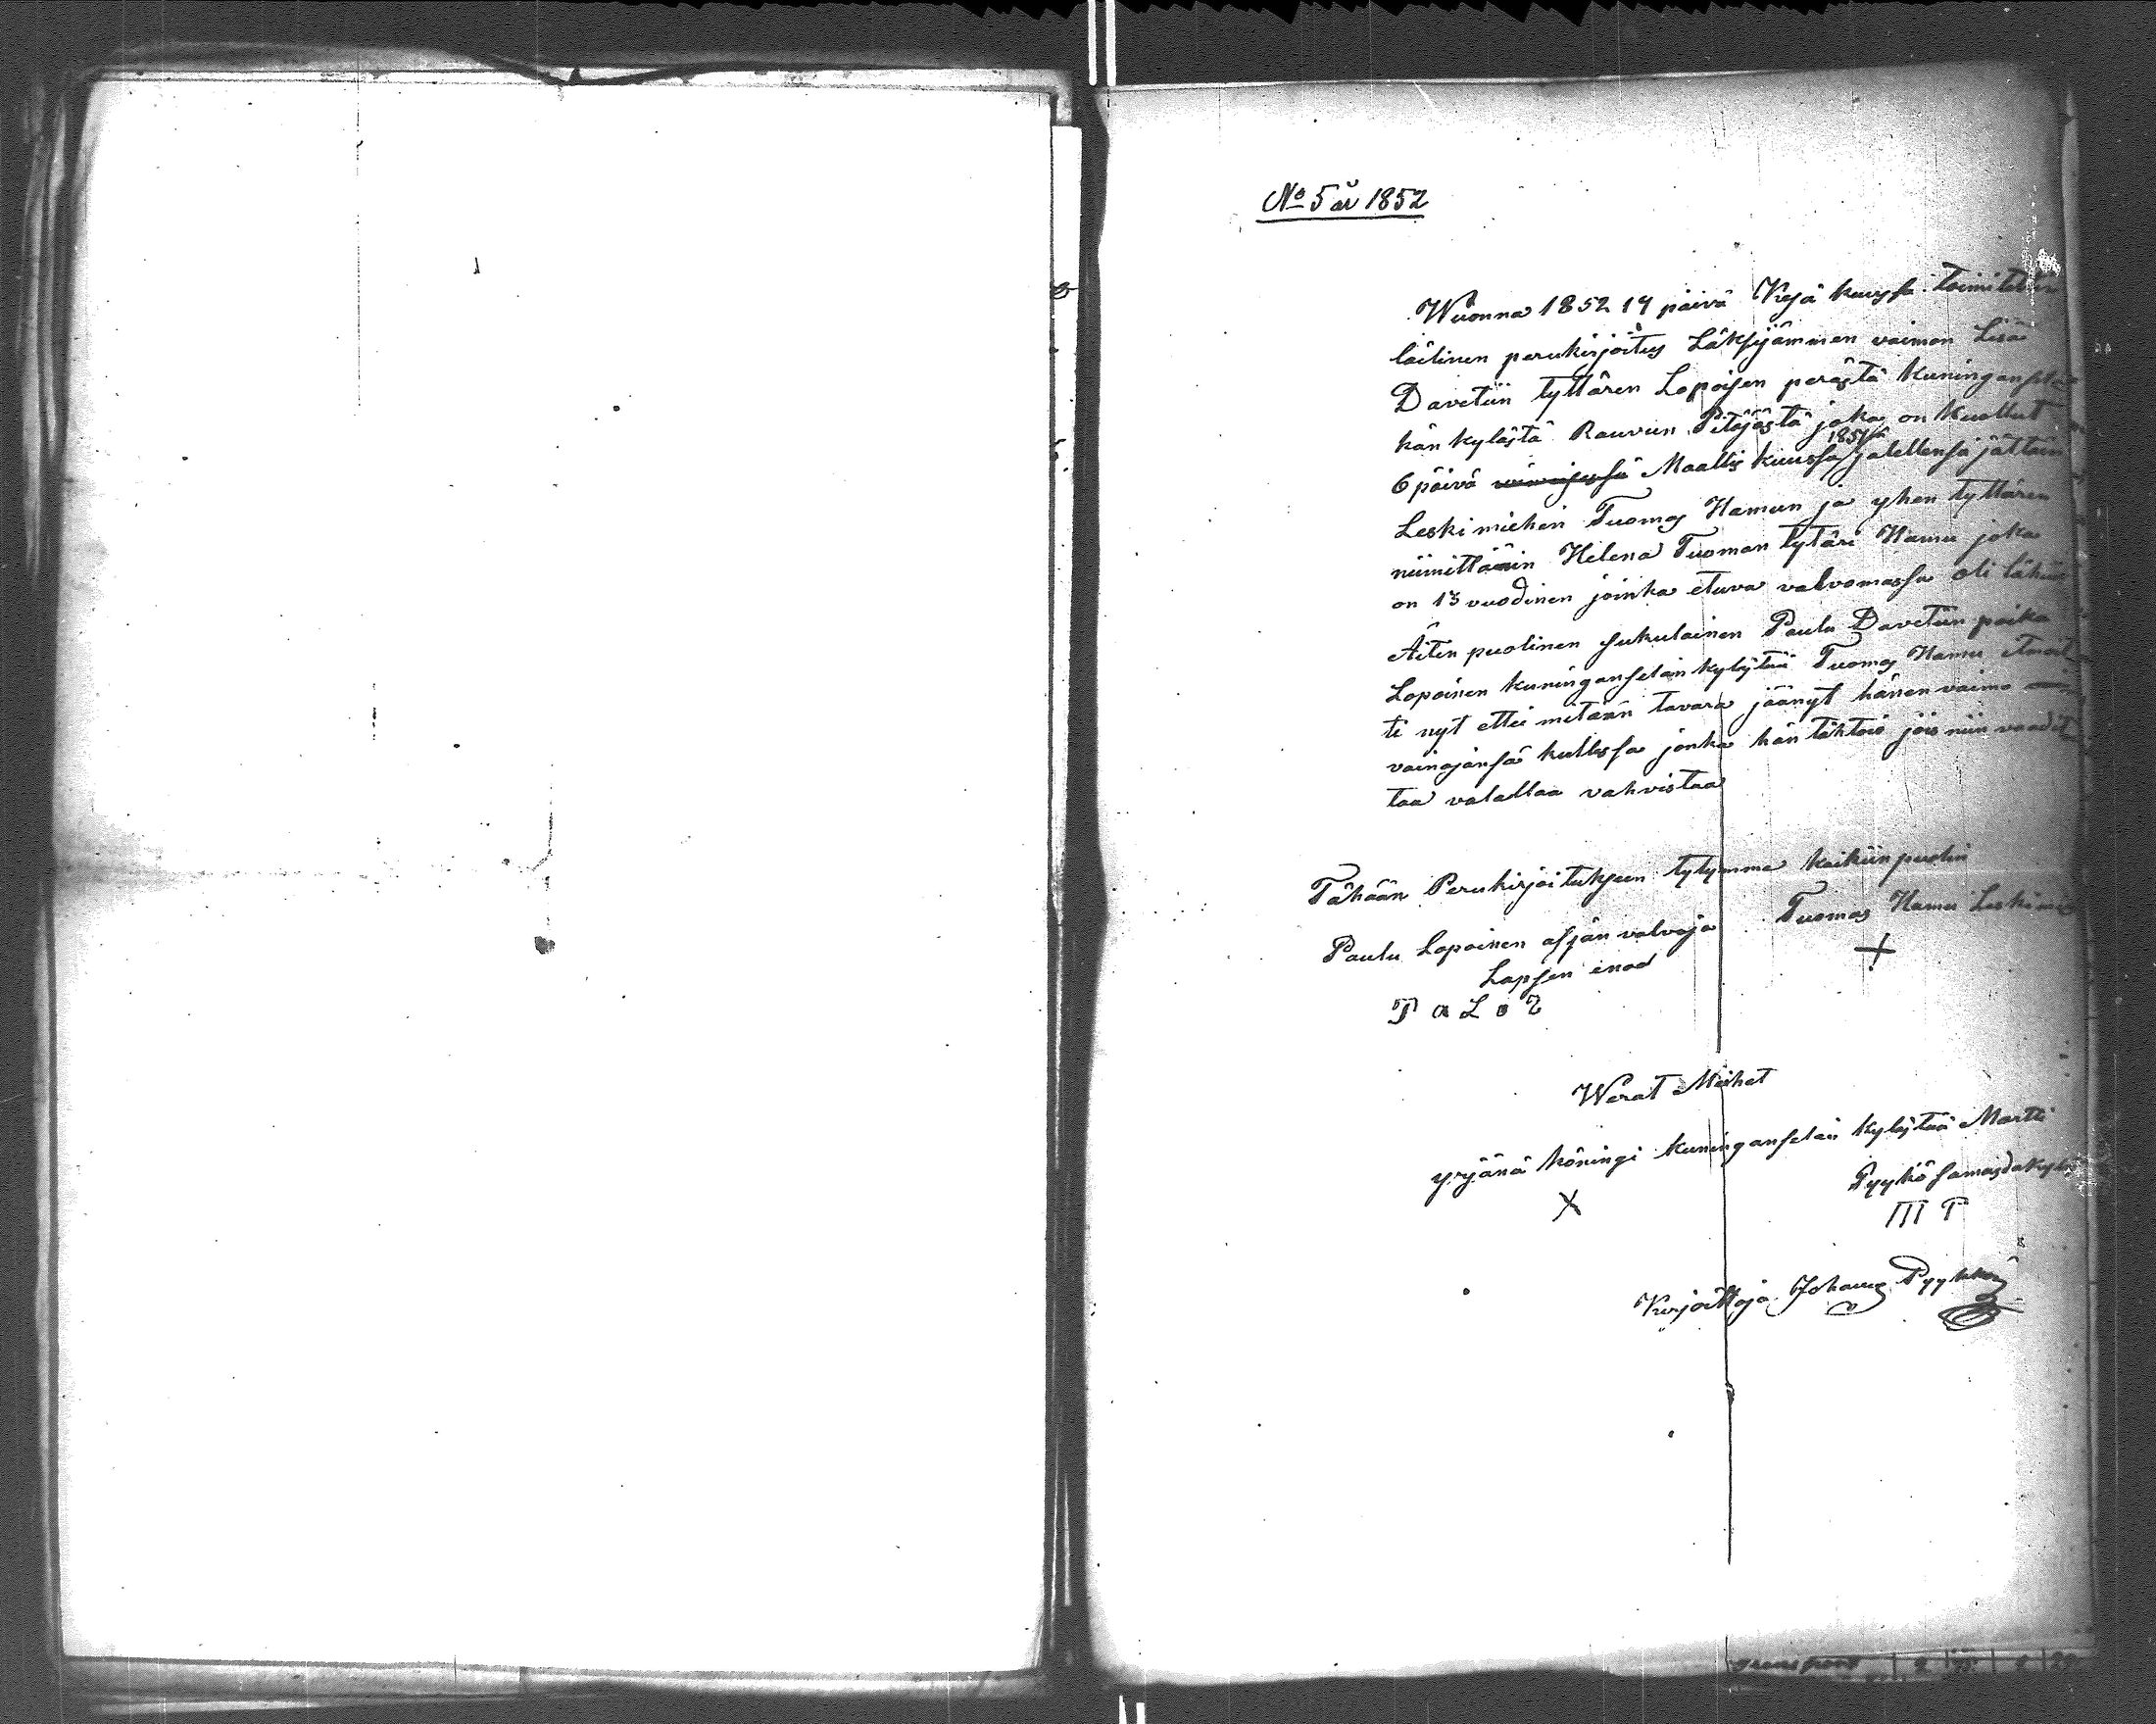 No 5 år 1852
Wuonna 1852 14 päivä Kesä kuussa toimitetin
läilinen perukirjoitus Läksijämmen vaimon Lisä
Davetiin tyttären Lopoisen perästä kuninganselä
hän kylästä Rauvun Pitäjästä joka on kuollut
6 päivä Maallis kuussa 1851sä jälellensä jättäin
Leski miehen Tuomas Hamun ja yhen tyttären
niimittäin Helena Tuoman tytäri Hamu joka
on 13 vuodinen joinka etuva valvomassa oli lähin
Äiten puolinen sukulainen Paulu Davetiin poika
Lopoinen kuninganselän kylästää Tuomas Hamu
ti nyt ettei mitään tavara jäänyt hänen vaimo
vainajansa kullessa jonka hän tahtoo jois niin vaadit
taa valallaa vahvistaa
Tähään Perukirjoitukseen tytymme kaikiin puolin
Paulu Lopoinen asjan valvoja Tuomas Hamu Leskimies
Lapsen enod
P a L o Z
Werat Miehet
yrjänä köningi kuninganselän kylästää Martti
Pyykö samasdakylä
III P
Kirjoittaja Johannes Pyykkö